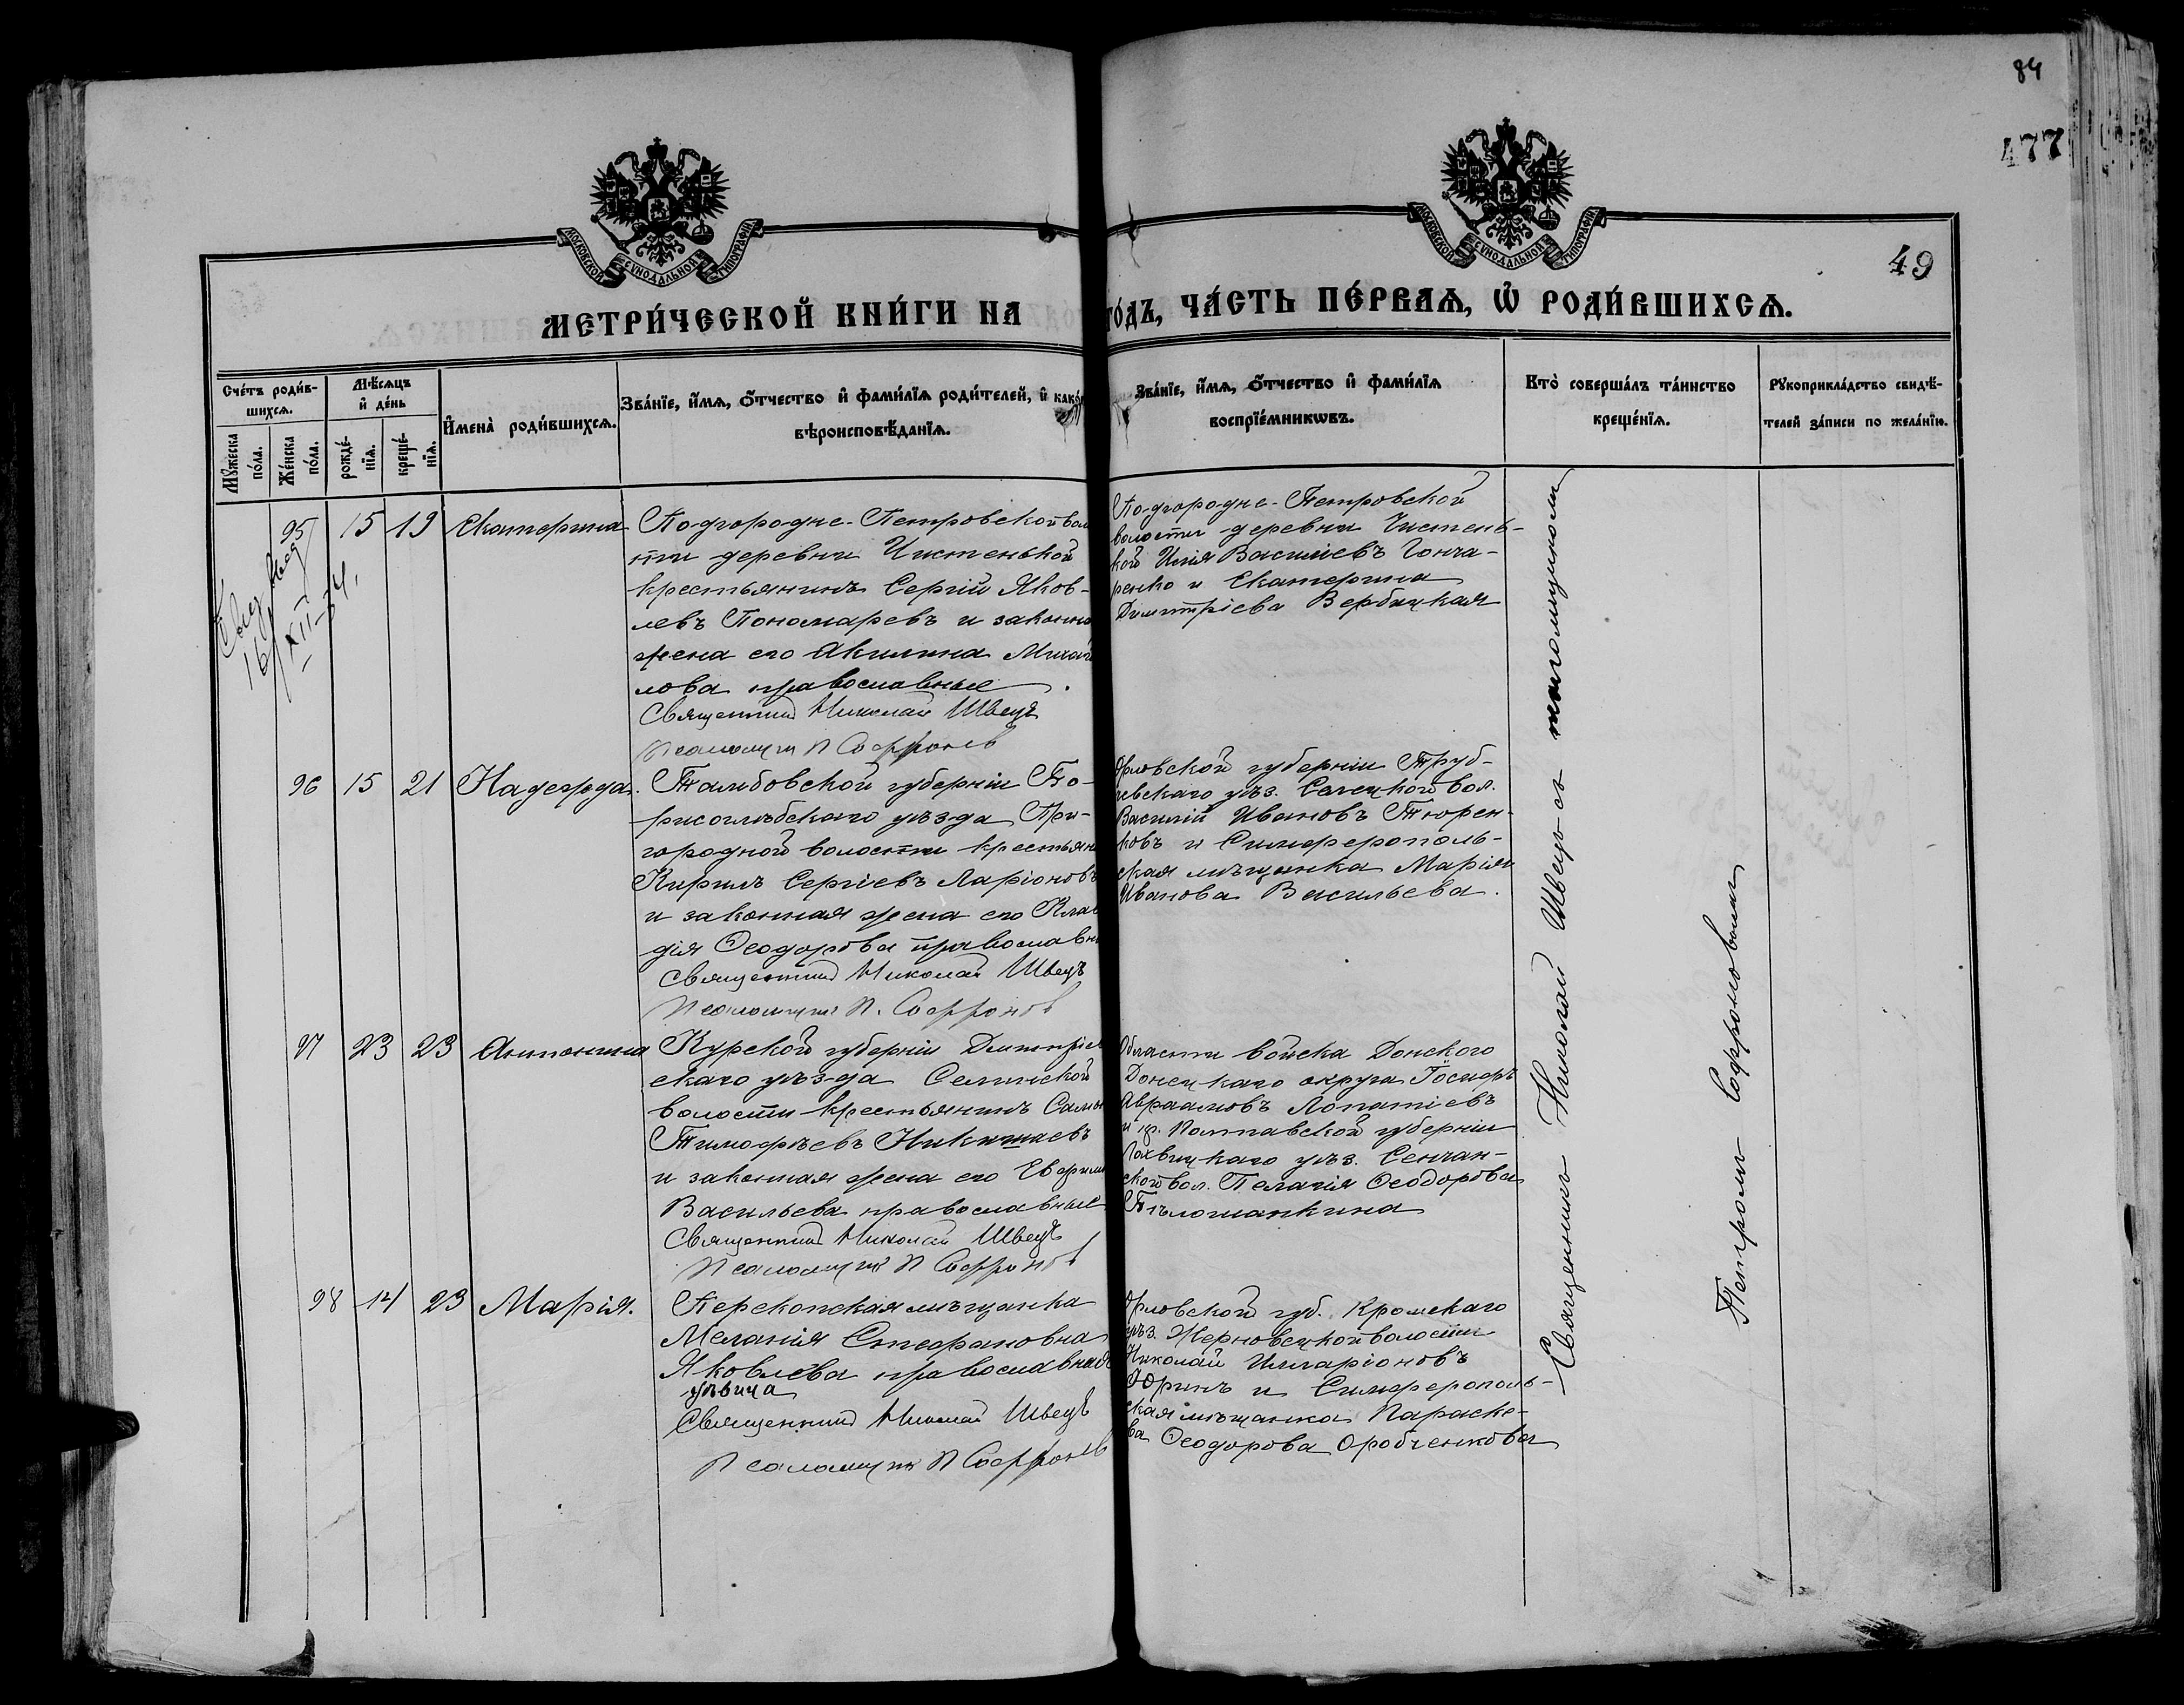 84
477
49
МОСКОВСКОЙ СѴНОДАЛЬНОЙ ТИПОГРАФІИ
МОСКОВСКОЙ СѴНОДАЛЬНОЙ ТИПОГРАФІИ
МЕТРИ́ЧЕСКОЙ КНИ́ГИ НА
ГО́ДЪ, ЧА́СТЬ ПЕ́РВАѦ, Ѡ҆ РОДИ́ВШИХСѦ.
Сче́тъ роди́в-
шихсѧ.
Мѣ́сѧцъ
и҆ де́нь
Мꙋ́жеска
по́ла.
Же́нска
по́ла.
рожде́-
нїѧ.
креще́-
нїѧ.
И҆мена̀ роди́вшихсѧ.
Зва́нїе, и҆́мѧ, ѻ҆́тчество и҆ фами́лїѧ роди́телей, и҆ како́
вѣроисповѣ́данїѧ.
Зва́нїе, и҆́мѧ, ѻ҆́тчество и҆ фами́лїѧ
воспрїе́мникѡвъ.
Кто̀ соверша́лъ та́инство
креще́нїѧ.
Рꙋкоприкла́дство свидѣ́-
телей за́писи по жела́нїю.
95 15 19 Екатерина
16/XII-34.
Подгородне-Петровской вол
сти деревни Чистенькой
крестьянинъ Сергій Яков-
левъ Пономаревъ и законна
жена его Акилина Михаи
лова православные.
Священникъ Николай Швецъ
Псаломщикъ П Софроновъ
Подгородне-Петровской
волости деревни Чистень-
кой Илія Василіевъ Гонча-
ренко и Екатерина
Димитріева Вербицкая
96 15 21 Надежда.
Тамбовской губерніи Бо-
рисоглѣбскаго уѣзда При-
городной волости крестьян
Кирилъ Сергіевъ Ларіоновъ
и законная жена его Клав
дія Ѳеодорова православн
Священникъ Николай Швецъ
Псаломщикъ П. Софроновъ
Орловской губерніи Труб-
чевскаго уѣз. Селецкой вол.
Василій Ивановъ Тюрен-
ковъ и Симферополь-
ская мѣщанка Марія
Иванова Васильева.
97 23 23 Антонина
Курской губерніи Димитріев
скаго уѣзда Селинской
волости крестьянинъ Сам
Тимофѣевъ Никишаевъ
и законная жена его Евфими
Васильева православные
Священникъ Николай Швецъ
Псаломщикъ П Софроновъ
Области войска Донского
Донецкаго округа Іосифъ
Авраамовъ Лопатіевъ
и кр. Полтавской губерніи
Лохвицкаго уѣз. Сенчан-
ской вол. Пелагія Ѳеодорова
Бѣлошапкина
98 14 23 Марія.
Перекопская мѣщанка
Меланія Стефановна
Яковлева православная
дѣвица
Священникъ Николай Швецъ
Псаломщикъ П Софроновъ
Орловской губ. Кромскаго
уѣз. Жерновецкой волости
Николай Илларіоновъ
Юринъ и Симферополь-
ская мѣщанка Параске-
ва Ѳеодорова Оробченкова
Священникъ Николай Швецъ съ псаломщикомъ
Петромъ Софроновымъ